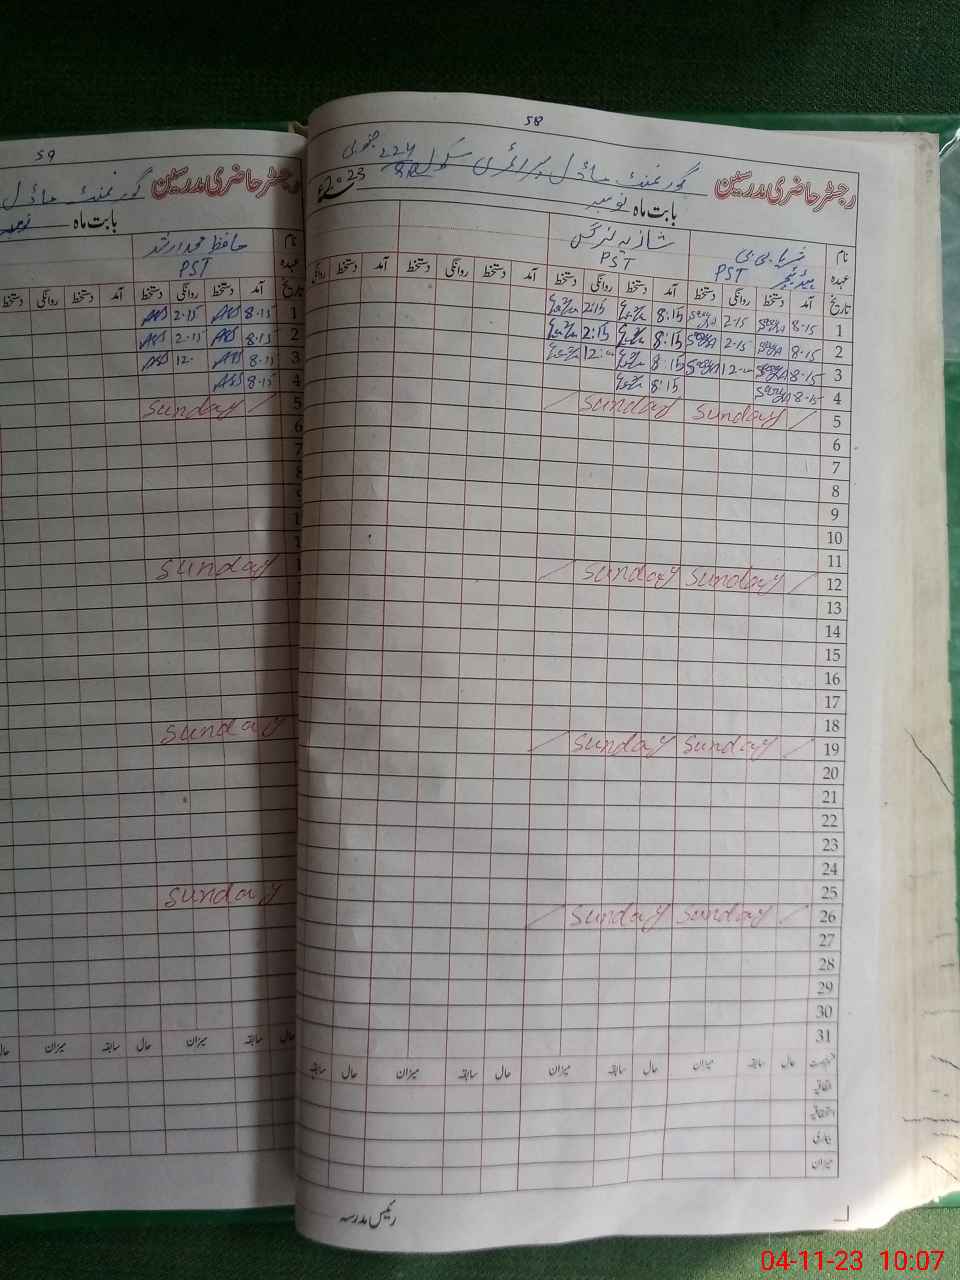 58
رجسٹر حاضری مدرسین گورنمنٹ ماڈل پرائمری سکول
بابت ماہ نومبر 2023ء
نام
شازیہ نرگس
عہدہ ہیڈ ٹیچر PST PST
تاریخ آمد دستخط روانگی دستخط آمد دستخط روانگی دستخط آمد دستخط روانگی دستخط آمد دستخط روانگی
1 8-15 2-15 8:15 2:15
2 8-15 2-15 8:15 2:15
3 8-15 12- 8:15 12:
4 8-15 8:15
5 Sunday Sunday
6
7
8
9
10
11
12 Sunday Sunday
13
14
15
16
17
18
19 Sunday Sunday
20
21
22
23
24
25
26 Sunday Sunday
27
28
29
30
31
حال سابقہ میزان حال سابقہ میزان حال سابقہ میزان حال سابقہ
اتفاقیہ
استحقاقیہ
بیماری
میزان
رئیس مدرسہ
59
رجسٹر حاضری مدرسین گورنمنٹ ماڈل
بابت ماہ
نام حافظ محمد ارشد
عہدہ PST
تاریخ آمد دستخط روانگی دستخط آمد دستخط روانگی دستخط
1 8-15 2-15
2 8-15 2-15
3 8-15 12-
4 8-15
5 Sunday
6
7
8
Sunday
Sunday
Sunday
حال سابقہ میزان حال سابقہ میزان حال
04-11-23 10:07